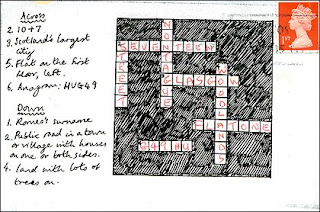 Across
2. 10 + 7
3. Scotland's largest
city
5. Flat on the first
floor, left.
6. Anagram: HUG49
Down
1. Romeo's surname
2. Public road in a town
or village with houses
on one or both sides.
4. Land with lots of
trees on.
MONTAGUE
SEVENTEEN
STREET
GLASGOW
WOODLANDS
FLAT ONE
G49HU
1st